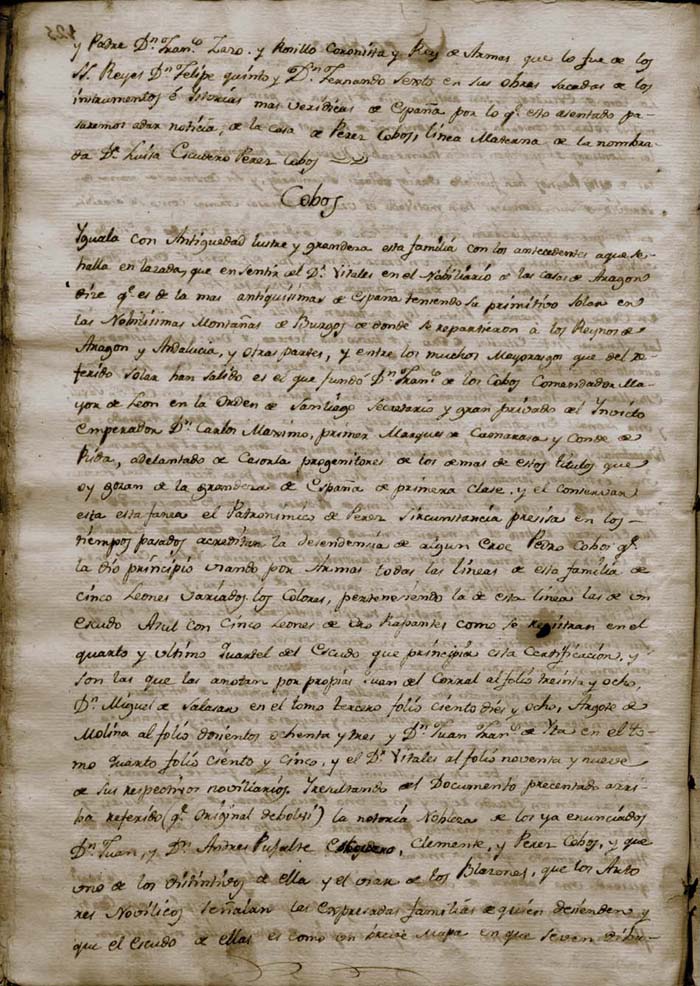 y Padre Dn. Franco. Zazo, y Rosillo Coronista y Rey de Armas que lo fue de los
SS. Reyes Dn. Felipe quinto y Dn. Fernando Sexto en sus obras sacadas de los
instrumentos é istorias mas veridicas de España por lo q.e esto asentado pa-
saremos adar noticia, de la casa de Perez Cobos, linea Materna de la nombra-
da Da. Luisa Escudero Perez Cobos
Cobos
Yguala con Antiguedad lustre y grandeza esta familia con los antecedentes aque se
halla enlazada, que en sentir del Dr. Vitales en el Nobiliario de las casas de Aragon
dize q.e es de la mas antiquisimas de España teniendo su primitivo solar en
las Nobilisimas Montañas de Burgos de donde se repartieron á los Reynos de
Aragon y Andalucia, y otras partes, y entre los muchos Mayorasgos que del re-
ferido solar han salido es el que fundó Dn. Franco. de los Cobos Comendador Ma-
yor de Leon en la Orden de Santiago Secretario y gran privado del Invicto
Emperador Dn. Carlos Maximo, primer Marques de Camarasa y Conde de
Ricla, adelantado de Casorla progenitores de los demas de estos titulos que
oy gozan de la grandeza de España de primera clase, y el conservar
esta el Patronimico de Perez Sircunstancia presisa en los
tiempos pasados acreditan la desendensia de algun Eroe Pedro Cobos q.e
la dio principio usando por Armas todas las lineas de esta familia de
cinco Leones variados los Colores, perteneciendo la de esta linea las de un
escudo Azul con Cinco Leones de oro Rapantes como se registran en el
quarto y ultimo quartel del Escudo que principia esta Certificacion, y
son las que las anotan por propias Juan del Corral al folio treinta y ocho,
Dn. Miguel de Salasar en el tomo tercero folio ciento dies y ocho, Argote de
Molina al folio dosientos ochenta y tres y Dn. Juan Franco. de Yta en el to-
mo quarto folio ciento y cinco, y el Dr. Vitales al folio noventa y nueve
de sus respectivos noviliarios. Yresultando del Documento precentado arri-
ba referido (q.e Original debolvi) la notoria Nobleza de los ya enunciados
Dn. Juan, y Dn. Andres Pusalte Escudero, Clemente, y Perez Cobos, y que
uno de los distintivos de ella y el usar de los Blazones, que los Auto
res Novilicos señalan las expresadas familias de quien desienden y
que el escudo de ellas es como un breve Mapa en que se ven dibu-